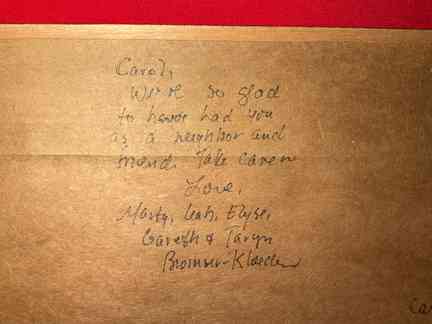 Carol,
We're so glad
to have had you
as a neighbor and
friend. Take care
Love,
Marty, Leah, Elyse,
Gareth & Taryn